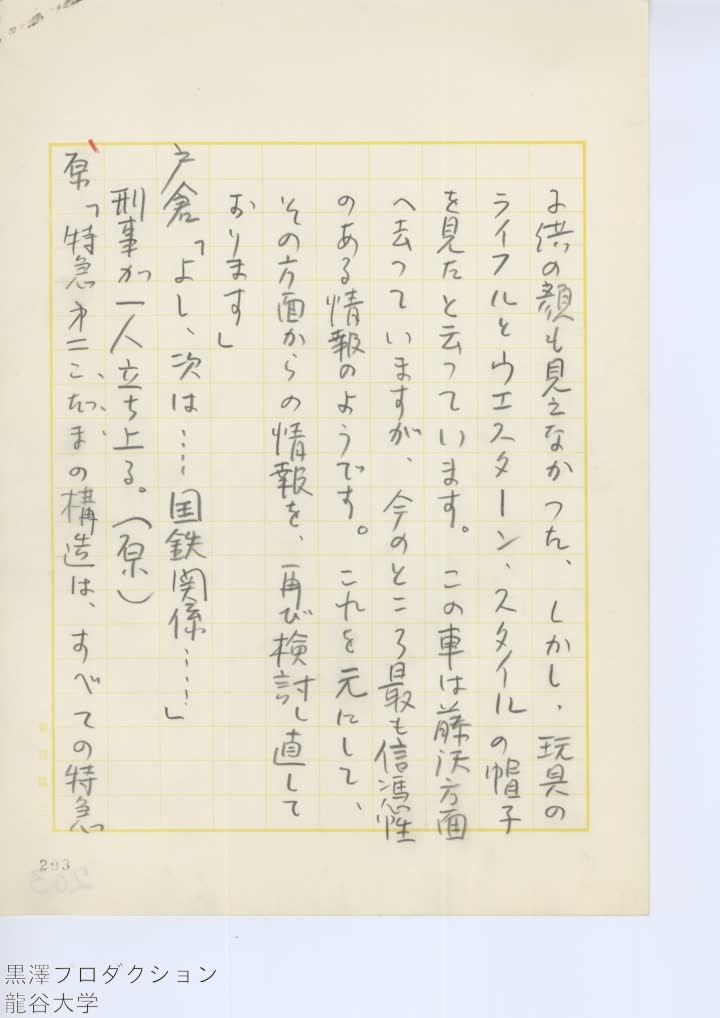 子供の顔も見えなかった、しかし、玩具の
ライフルとウエスターン、スタイルの帽子
を見たと云っています。この車は藤沢方面
へ去っていますが、今のところ最も信憑性
のある情報のようです。これを元にして、
その方面からの情報を、再び検討し直して
おります」
戸倉「よし、次は……国鉄関係……」
刑事が一人立ち上る。（原）
原「特急オ二こだまの構造は、すべての特急
293
黒澤プロダクション
龍谷大学